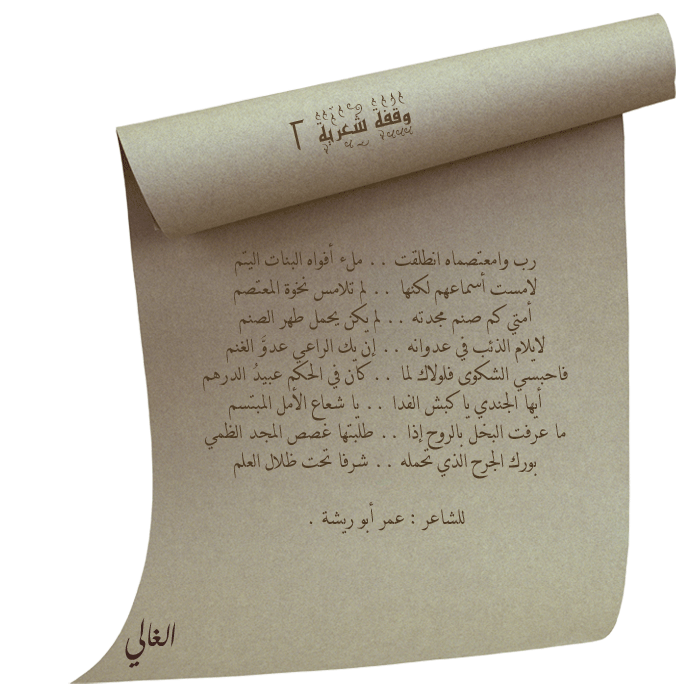 وقفة شعرية ٢
رب وامعتصماه انطلقت . . ملء أفواه البنات اليتم
لامست أسماعهم لكنها . . لم تلامس نخوة المعتصم
أمتي كم صنم مجدته . . لم يكن يحمل طهر الصنم
لايلام الذئب في عدوانه . . إن يك الراعي عدوَّ الغنم
فاحبسي الشكوى فلولاك لما . . كان في الحكم عبيدُ الدرهم
أيها الجندي يا كبش الفدا . . يا شعاع الأمل المبتسم
ما عرفت البخل بالروح إذا . . طلبتها غصص المجد الظمي
بورك الجرح الذي تحمله . . شرفا تحت ظلال العلم
للشاعر : عمر أبو ريشة .
الغالي